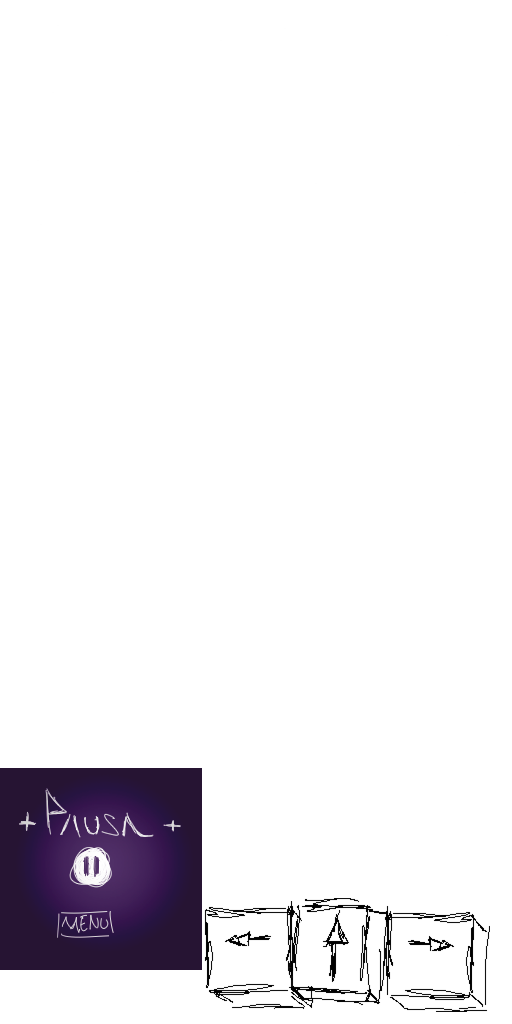 PAUSA
MENU